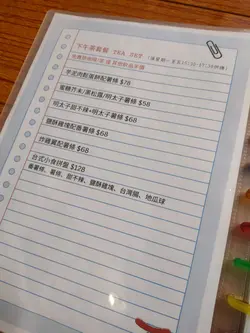 下午茶套餐 TEA SET
芋泥肉鬆蛋餅配薯條 $78
蜜糖芥末/黑松露/明太子薯條 $58
明太子甜不辣+明太子薯條 $68
鹽酥雞塊配番薯條 $68
炸雞翼配薯條 $68
台式小食拼盤 $128
番薯條、薯條、甜不辣、鹽酥雞塊、台灣腸、地瓜球